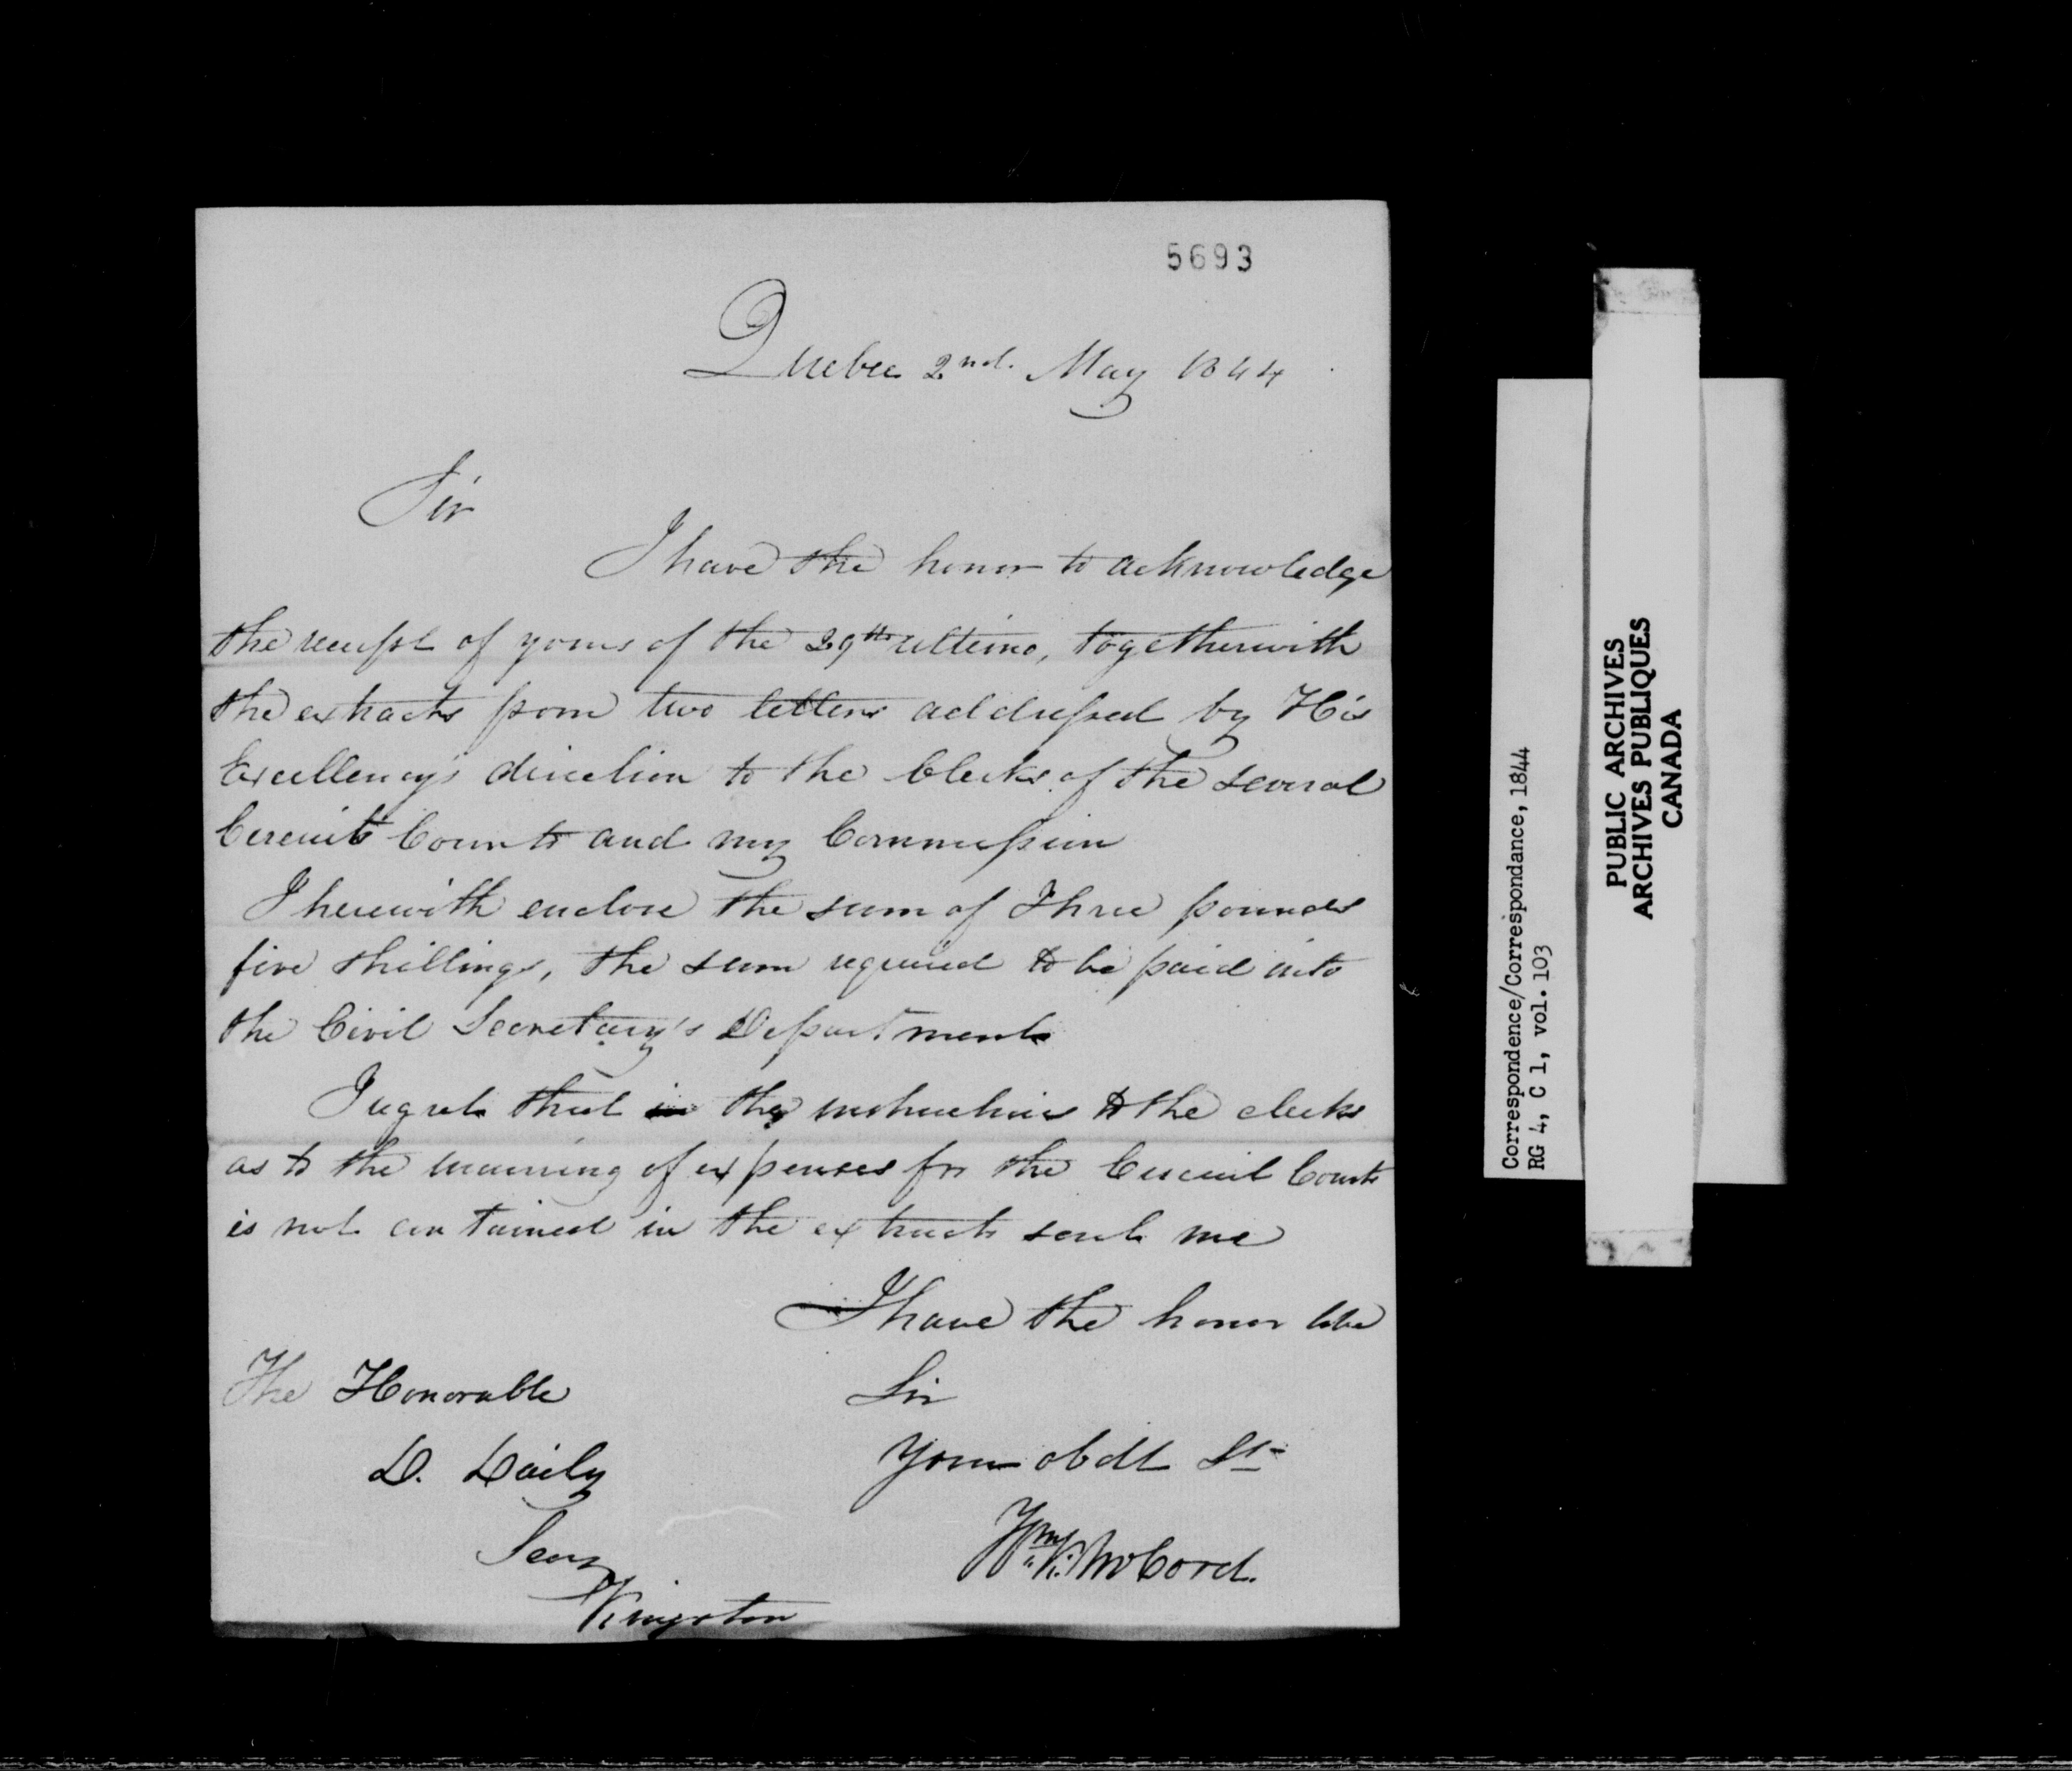 5693
Quebec 2nd. May 1844
Sir
I have the honor to acknowledge
the receipt of yours of the 29th ultimo, together with
the extracts from two letters addressed by His
Excellency's direction to the Clerks of the several
Circuit Courts and my Commission
I herewith enclose the sum of Three pounds
five shillings, the sum required to be paid into
the Civil Secretary's Department
I regret that in the instructions to the clerks
as to the meaning of expenses for the Circuit Courts
is not contained in the extracts sent me
I have the honor to be
Sir
Your obdt St
Wm. K. McCord.
The Honorable
D. Daily
Secy
Kingston
Correspondence/Correspondance, 1844
RG 4, C 1, vol. 103
PUBLIC ARCHIVES
ARCHIVES PUBLIQUES
CANADA